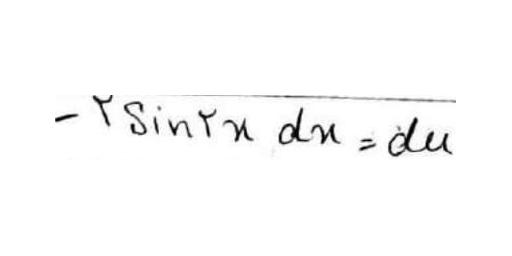 -۲ sin۲x dx = du